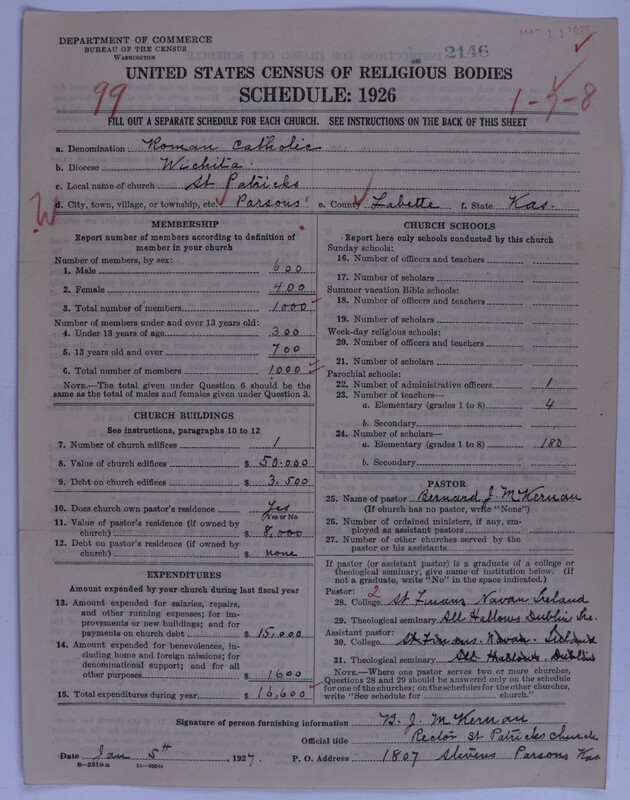 DEPARTMENT OF COMMERCE
BUREAU OF THE CENSUS
WASHINGTON
2146
MAR 11 1927
UNITED STATES CENSUS OF RELIGIOUS BODIES
SCHEDULE: 1926
99
1-7-8
FILL OUT A SEPARATE SCHEDULE FOR EACH CHURCH. SEE INSTRUCTIONS ON THE BACK OF THIS SHEET
a. Denomination Roman Catholic
b. Diocese Wichita
c. Local name of church St Patricks
W
d. City, town, village, or township, etc. Parsons e. County Labette f. State Kas.
MEMBERSHIP
Report number of members according to definition of
member in your church
Number of members, by sex:
1. Male 600
2. Female 400
3. Total number of members 1000
Number of members under and over 13 years old:
4. Under 13 years of age 300
5. 13 years old and over 700
6. Total number of members 1000
NOTE.—The total given under Question 6 should be
same as the total of males and females given under Question 3.
CHURCH BUILDINGS
See instructions, paragraphs 10 to 12
7. Number of church edifices 1
8. Value of church edifices $ 50.000
9. Debt on church edifices $ 3,500
10. Does church own pastor's residence Yes
(Yes or No)
11. Value of pastor's residence (if owned by
church) $ 8,000
12. Debt on pastor's residence (if owned by
church) $ none
EXPENDITURES
Amount expended by your church during last fiscal year
13. Amount expended for salaries, repairs,
and other running expenses; for im-
provements or new buildings; and for
payments on church debt $ 15,000
14. Amount expended for benevolences, in-
cluding home and foreign missions; for
denominational support; and for all
other purposes $ 1600
15. Total expenditures during year $ 16,600
CHURCH SCHOOLS
Report here only schools conducted by this church
Sunday schools:
16. Number of officers and teachers
17. Number of scholars
Summer vacation Bible schools:
18. Number of officers and teachers
19. Number of scholars
Week-day religious schools:
20. Number of officers and teachers
21. Number of scholars
Parochial schools:
22. Number of administrative officers 1
23. Number of teachers—
a. Elementary (grades 1 to 8) 4
b. Secondary
24. Number of scholars—
a. Elementary (grades 1 to 8) 180
b. Secondary
PASTOR
25. Name of pastor Bernard J. McKernan
(If church has no pastor, write "None")
26. Number of ordained ministers, if any, em-
ployed as assistant pastors
27. Number of other churches served by the
pastor or his assistants
If pastor (or assistant pastor) is a graduate of a college or
theological seminary, give name of institution below. (If
not a graduate, write "No" in the space indicated.)
Pastor: 2
28. College St Finians Navan Ireland
29. Theological seminary All Hallows Dublin Ire.
Assistant pastor:
30. College St Finians. Navan. Ireland
31. Theological seminary All Hallows. Dublin
NOTE.—Where one pastor serves two or more churches,
Questions 28 and 29 should be answered only on the schedule
for one of the churches; on the schedules for the other churches,
write "See schedule for church."
Signature of person furnishing information B. J. McKernan
Official title Rector St Patricks church
Date Jan 5th, 1927. P. O. Address 1807 Stevens Parsons Kas